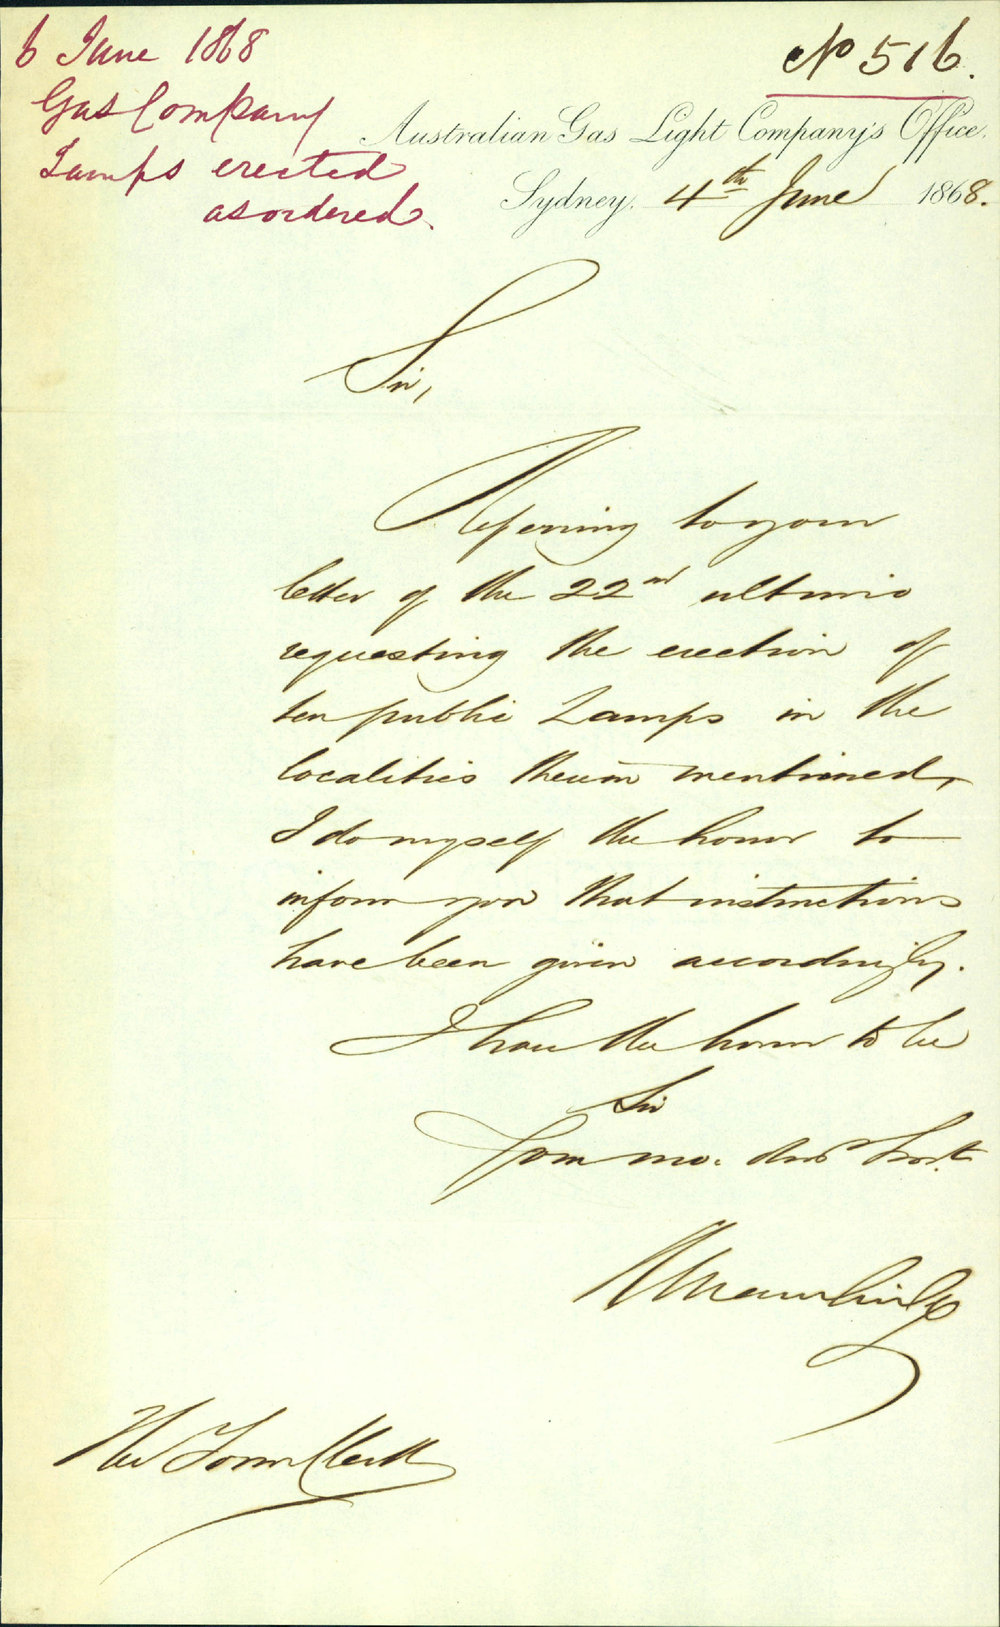 6 June 1868
Gas Company
Lamps erected
as ordered.
No 516.
Australian Gas Light Company's Office.
Sydney, 4th June 1868.
Sir,
Referring to your
letter of the 22nd ultimo
requesting the erection of
ten public Lamps in the
localities therein mentioned,
I do myself the honor to
inform you that instructions
have been given accordingly.
I have the honor to be
Sir
Your mo. Obdt Servt
The Town Clerk